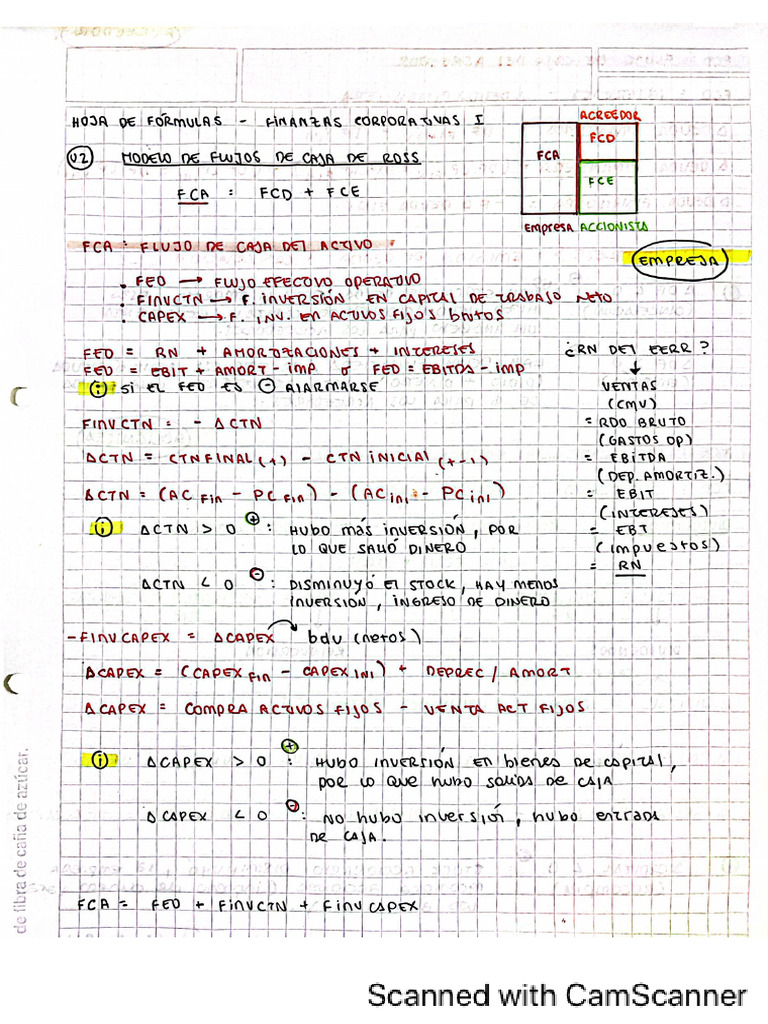 HOJA DE FÓRMULAS - FINANZAS CORPORATIVAS I
U2 MODELO DE FLUJOS DE CAJA DE ROSS
FCA = FCD + FCE
ACREEDOR
FCA
FCD
FCE
Empresa ACCIONISTA
FCA: FLUJO DE CAJA DEL ACTIVO
EMPRESA
. FEO → FLUJO EFECTIVO OPERATIVO
. FINVCTN → F. INVERSIÓN EN CAPITAL DE TRABAJO NETO
. CAPEX → F. INV. EN ACTIVOS FIJOS brutos
FEO = RN + AMORTIZACIONES + INTERESES
FEO = EBIT + AMORT - IMP ó FEO = EBITDA - IMP
i SI EL FEO ES ⊖ ALARMARSE
¿RN DEL EERR?
↓
VENTAS
(CMV)
= RDO BRUTO
(GASTOS OP)
= EBITDA
(DEP. AMORTIZ.)
= EBIT
(INTERESES)
= EBT
(impuestos)
= RN
FINVCTN = - ΔCTN
ΔCTN = CTN FINAL (t) - CTN INICIAL (t-1)
ΔCTN = (AC Fin - PC Fin) - (AC ini - PC ini)
i ΔCTN > 0 ⊕: HUBO MÁS INVERSIÓN, POR
LO QUE SALIÓ DINERO
ΔCTN < 0 ⊖: DISMINUYÓ EL STOCK, HAY MENOS
INVERSIÓN, INGRESO DE DINERO
-FINVCAPEX = ΔCAPEX bdu (netos)
ΔCAPEX = (CAPEX FIN - CAPEX INI) + DEPREC / AMORT
ΔCAPEX = COMPRA ACTIVOS FIJOS - VENTA ACT FIJOS
i ΔCAPEX > 0 ⊕: HUBO INVERSIÓN EN bienes DE CAPITAL,
POR LO QUE HUBO SALIDA DE CAJA
ΔCAPEX < 0 ⊖: NO HUBO INVERSIÓN, HUBO ENTRADA
DE CAJA.
FCA = FEO + FINVCTN + FINVCAPEX
de fibra de caña de azúcar.
Scanned with CamScanner